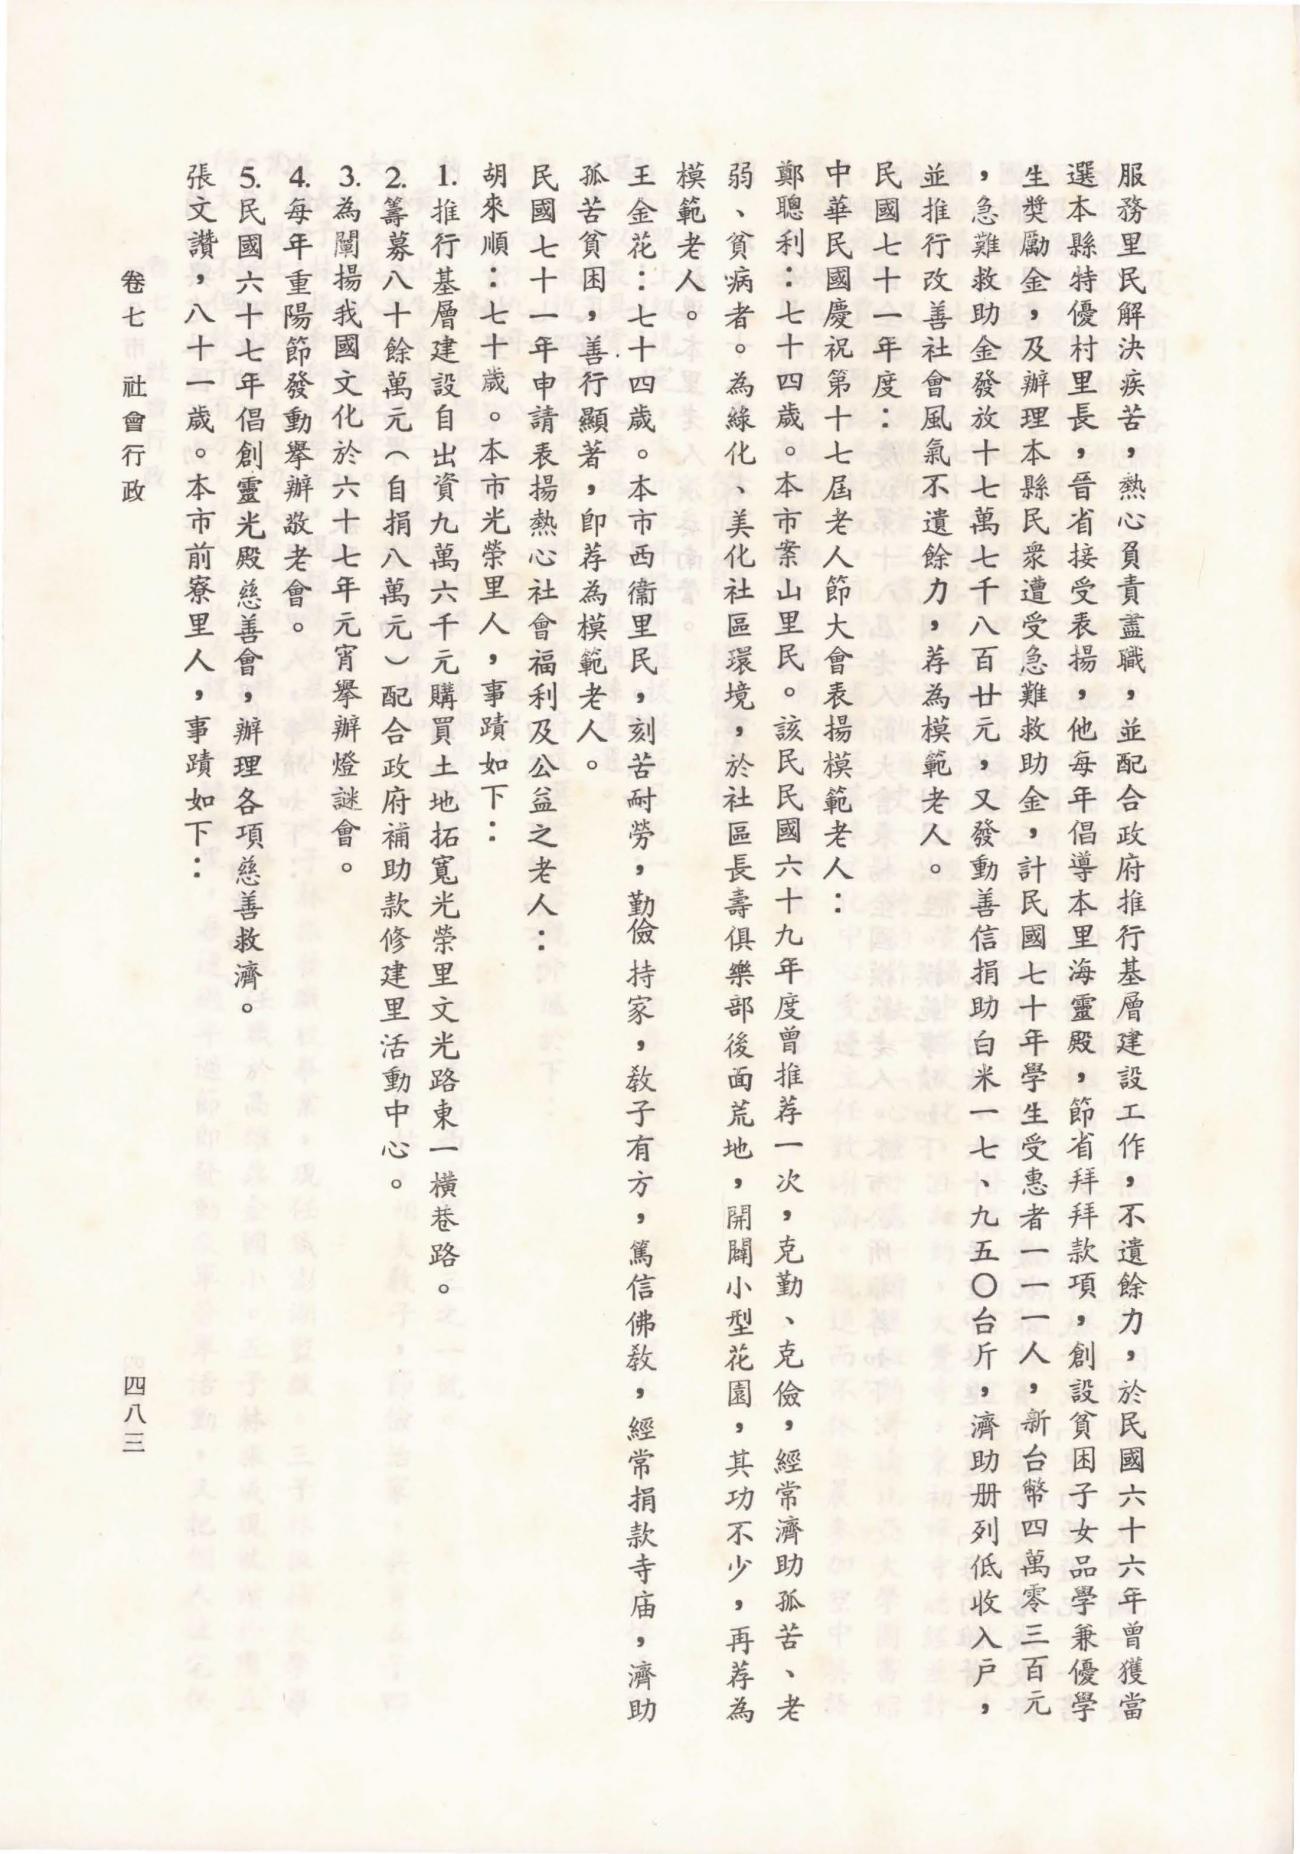 服務里民解決疾苦，熱心負責盡職，並配合政府推行基層建設工作，不遺餘力，於民國六十六年曾獲當
選本縣特優村里長，晉省接受表揚，他每年倡導本里海靈殿，節省拜拜款項，創設貧困子女品學兼優學
生獎勵金，及辦理本縣民衆遭受急難救助金，計民國七十年學生受惠者一一一人，新台幣四萬零三百元
，急難救助金發放十七萬七千八百廿元，又發動善信捐助白米一七、九五〇台斤，濟助册列低收入户，
並推行改善社會風氣不遺餘力，荐為模範老人。
民國七十一年度：
中華民國慶祝第十七屆老人節大會表揚模範老人：
鄭聰利：七十四歲。本市案山里民。該民民國六十九年度曾推荐一次，克勤、克儉，經常濟助孤苦、老
弱、貧病者。為綠化、美化社區環境，於社區長壽俱樂部後面荒地，開闢小型花園，其功不少，再荐為
模範老人。
王金花：七十四歲。本市西衞里民。刻苦耐勞，勤儉持家，教子有方，篤信佛教，經常捐款寺庙，濟助
孤苦貧困，善行顯著，卽荐為模範老人。
民國七十一年申請表揚熱心社會福利及公益之老人：
胡來順：七十歲。本市光榮里人，事蹟如下：
1.推行基層建設自出資九萬六千元購買土地拓寬光榮里文光路東一橫巷路。
2.籌募八十餘萬元（自捐八萬元）配合政府補助款修建里活動中心。
3.為闡揚我國文化於六十七年元宵擧辦燈謎會。
4.每年重陽節發動擧辦敬老會。
5.民國六十七年倡創靈光殿慈善會，辦理各項慈善救濟。
張文讚，八十一歲。本市前寮里人，事蹟如下：
卷七　社會行政
四八三